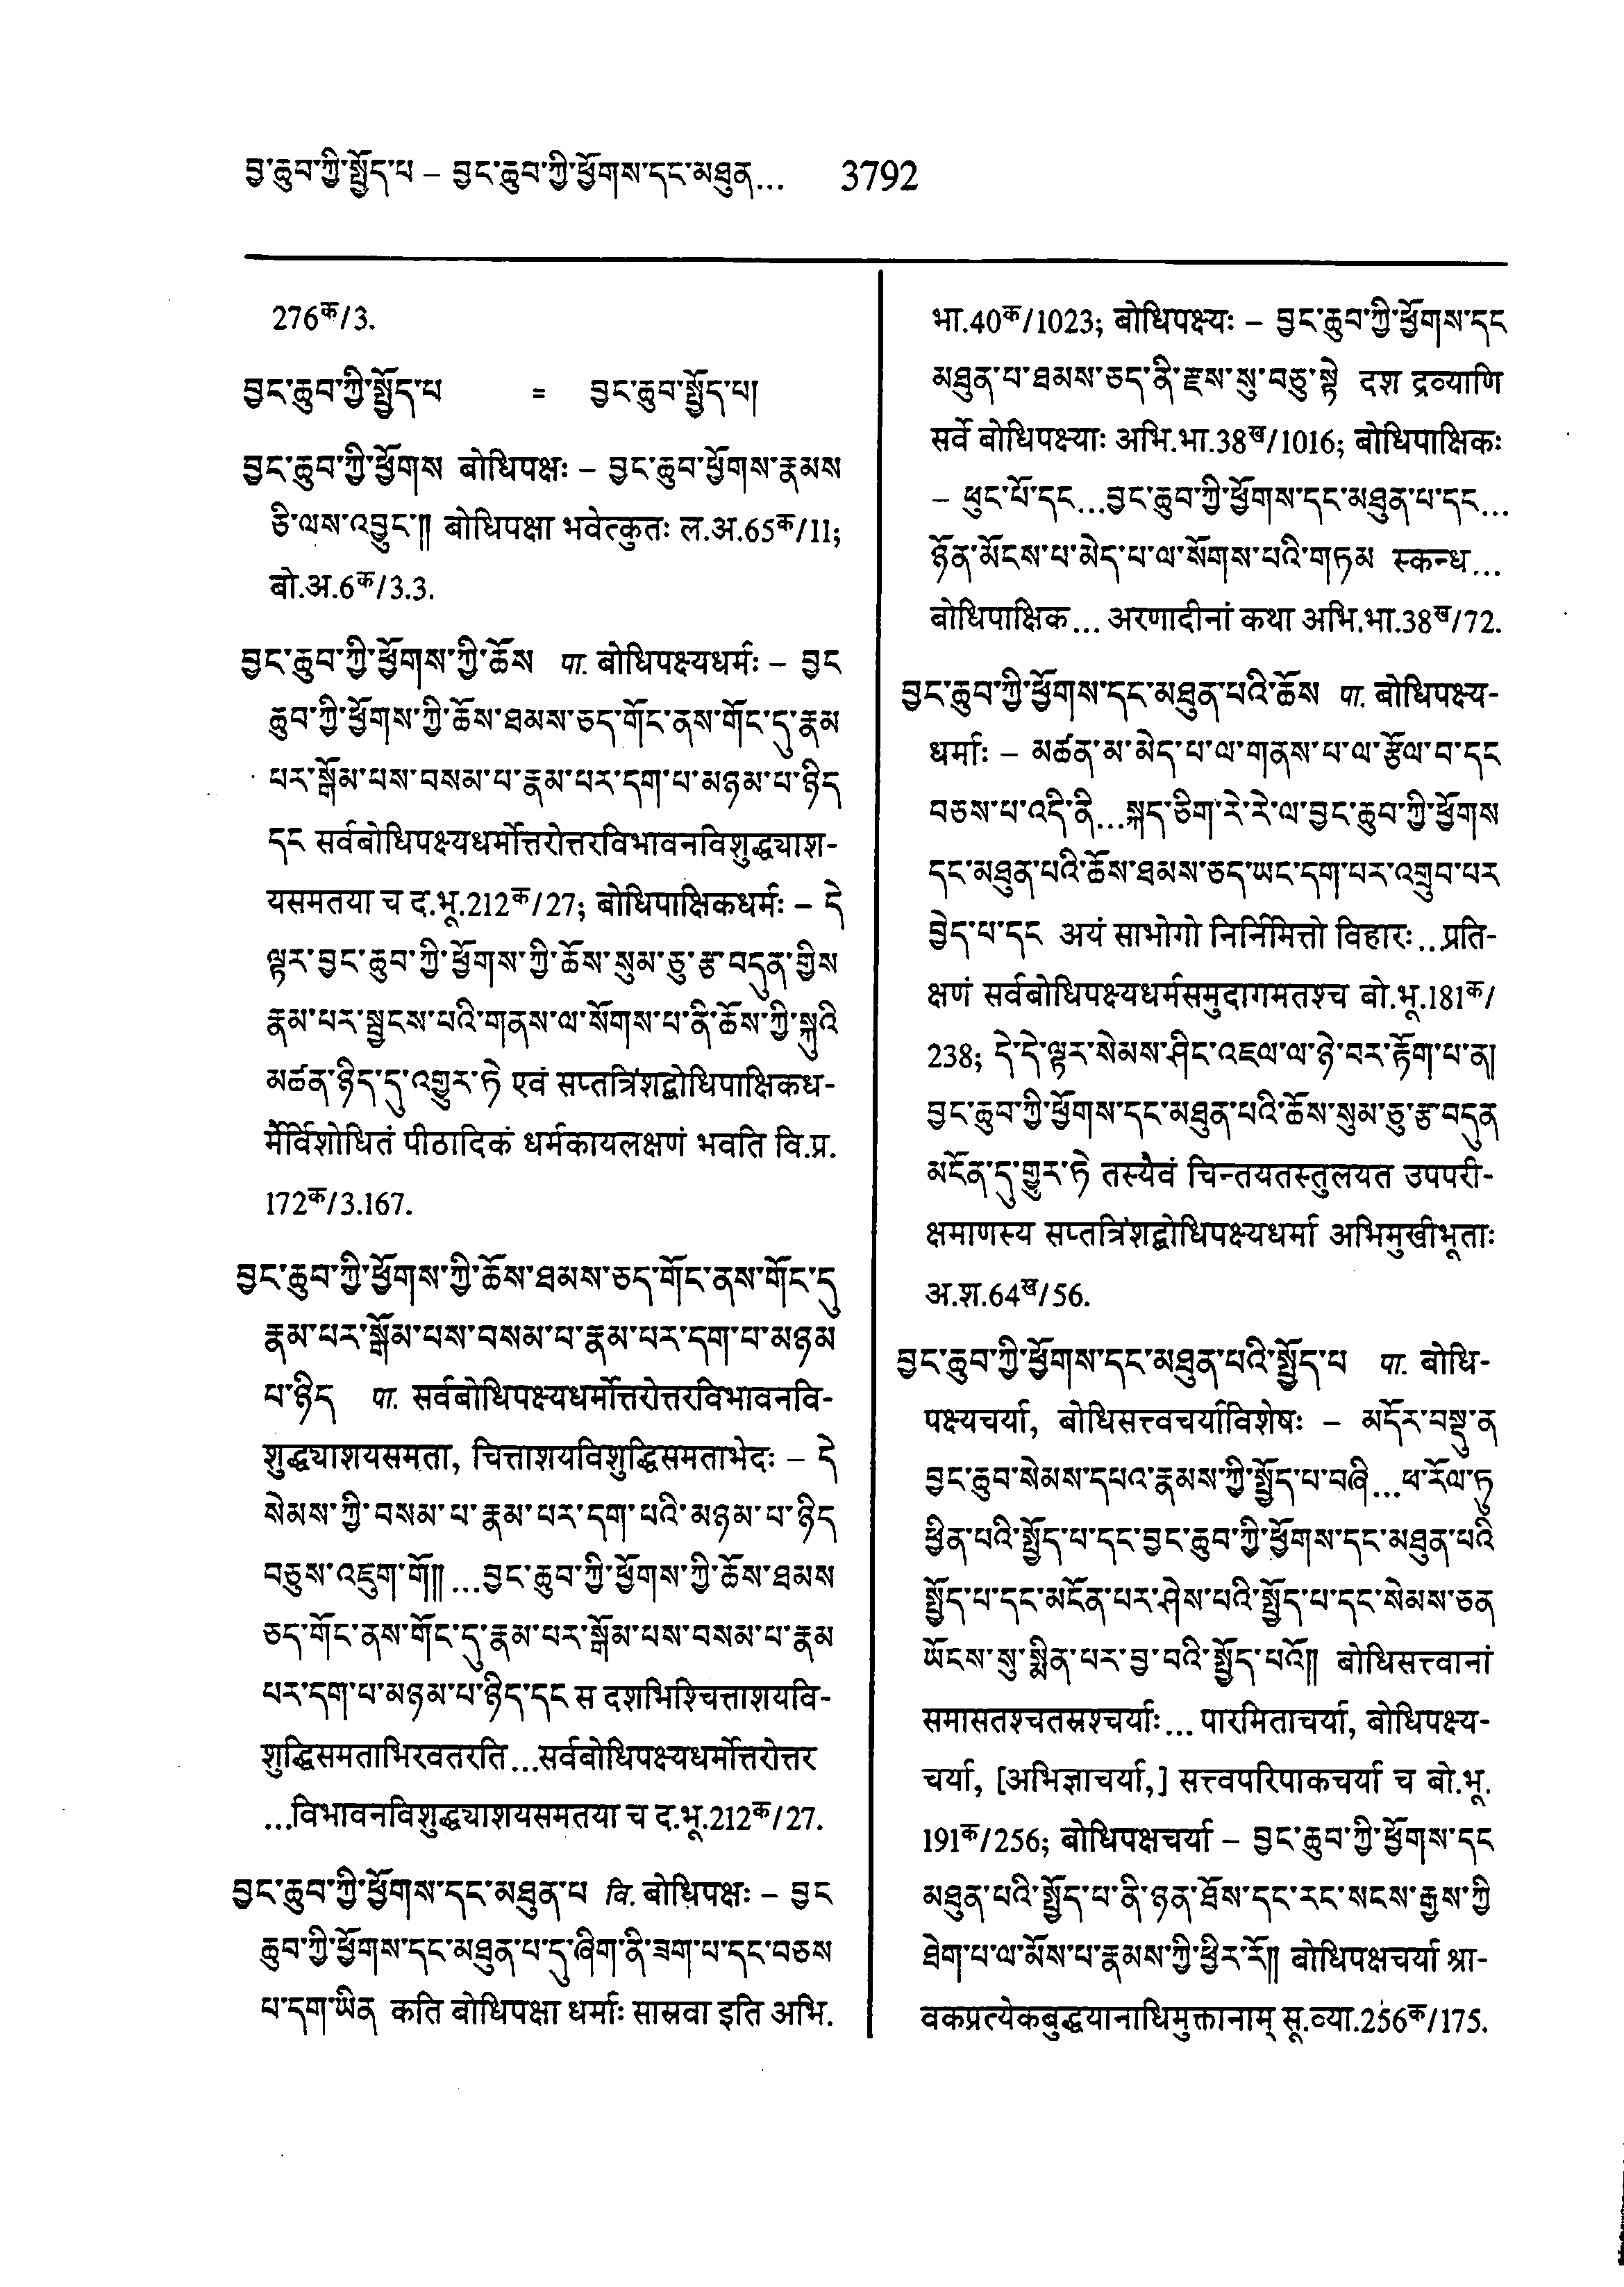 བྱ་ཆུབ་ཀྱི་སྤྱོད་པ – བྱང་ཆུབ་ཀྱི་ཕྱོགས་དང་མཐུན... 3792
276क/3.
བྱང་ཆུབ་ཀྱི་སྤྱོད་པ = བྱང་ཆུབ་སྤྱོད་པ།
བྱང་ཆུབ་ཀྱི་ཕྱོགས बोधिपक्षः – བྱང་ཆུབ་ཕྱོགས་རྣམས
ཅི་ལས་འབྱུང་།། बोधिपक्षा भवेत्कुतः ल.अ.65क/11;
बो.अ.6क/3.3.
བྱང་ཆུབ་ཀྱི་ཕྱོགས་ཀྱི་ཆོས पा. बोधिपक्ष्यधर्मः – བྱང
ཆུབ་ཀྱི་ཕྱོགས་ཀྱི་ཆོས་ཐམས་ཅད་གོང་ནས་གོང་དུ་རྣམ
པར་སྒོམ་པས་བསམ་པ་རྣམ་པར་དག་པ་མཉམ་པ་ཉིད
དང सर्वबोधिपक्ष्यधर्मोत्तरोत्तरविभावनविशुद्ध्याश-
यसमतया च द.भू.212क/27; बोधिपाक्षिकधर्मः – དེ
ལྟར་བྱང་ཆུབ་ཀྱི་ཕྱོགས་ཀྱི་ཆོས་སུམ་ཅུ་རྩ་བདུན་གྱིས
རྣམ་པར་སྦྱངས་པའི་གནས་ལ་སོགས་པ་ནི་ཆོས་ཀྱི་སྐུའི
མཚན་ཉིད་དུ་འགྱུར་ཏེ एवं सप्तत्रिंशद्बोधिपाक्षिकध-
र्मैर्विशोधितं पीठादिकं धर्मकायलक्षणं भवति वि.प्र.
172क/3.167.
བྱང་ཆུབ་ཀྱི་ཕྱོགས་ཀྱི་ཆོས་ཐམས་ཅད་གོང་ནས་གོང་དུ
རྣམ་པར་སྒོམ་པས་བསམ་པ་རྣམ་པར་དག་པ་མཉམ
པ་ཉིད पा. सर्वबोधिपक्ष्यधर्मोत्तरोत्तरविभावनवि-
शुद्ध्याशयसमता, चित्ताशयविशुद्धिसमताभेदः – དེ
སེམས་ཀྱི་བསམ་པ་རྣམ་པར་དག་པའི་མཉམ་པ་ཉིད
བཅུས་འཇུག་གོ།། ...བྱང་ཆུབ་ཀྱི་ཕྱོགས་ཀྱི་ཆོས་ཐམས
ཅད་གོང་ནས་གོང་དུ་རྣམ་པར་སྒོམ་པས་བསམ་པ་རྣམ
པར་དག་པ་མཉམ་པ་ཉིད་དང स दशभिश्चित्ताशयवि-
शुद्धिसमताभिरवतरति ...सर्वबोधिपक्ष्यधर्मोत्तरोत्तर
...विभावनविशुद्ध्याशयसमतया च द.भू.212क/27.
བྱང་ཆུབ་ཀྱི་ཕྱོགས་དང་མཐུན་པ वि. बोधिपक्षः – བྱང
ཆུབ་ཀྱི་ཕྱོགས་དང་མཐུན་པ་དུ་ཞིག་ནི་ཟག་པ་དང་བཅས
པ་དག་ཡིན कति बोधिपक्षा धर्माः सास्रवा इति अभि.
भा.40क/1023; बोधिपक्ष्यः – བྱང་ཆུབ་ཀྱི་ཕྱོགས་དང
མཐུན་པ་ཐམས་ཅད་ནི་རྫས་སུ་བཅུ་སྟེ दश द्रव्याणि
सर्वे बोधिपक्ष्याः अभि.भा.38ख/1016; बोधिपाक्षिकः
– ཕུང་པོ་དང...བྱང་ཆུབ་ཀྱི་ཕྱོགས་དང་མཐུན་པ་དང...
ཉོན་མོངས་པ་མེད་པ་ལ་སོགས་པའི་གཏམ स्कन्ध...
बोधिपाक्षिक... अरणादीनां कथा अभि.भा.38ख/72.
བྱང་ཆུབ་ཀྱི་ཕྱོགས་དང་མཐུན་པའི་ཆོས पा. बोधिपक्ष्य-
धर्माः – མཚན་མ་མེད་པ་ལ་གནས་པ་ལ་རྩོལ་བ་དང
བཅས་པ་འདི་ནི...སྐད་ཅིག་རེ་རེ་ལ་བྱང་ཆུབ་ཀྱི་ཕྱོགས
དང་མཐུན་པའི་ཆོས་ཐམས་ཅད་ཡང་དག་པར་འགྲུབ་པར
བྱེད་པ་དང अयं साभोगो निर्निमित्तो विहारः ...प्रति-
क्षणं सर्वबोधिपक्ष्यधर्मसमुदागमतश्च बो.भू.181क/
238; དེ་དེ་ལྟར་སེམས་ཤིང་འཇལ་ལ་ཉེ་བར་རྟོག་པ་ན།
བྱང་ཆུབ་ཀྱི་ཕྱོགས་དང་མཐུན་པའི་ཆོས་སུམ་ཅུ་རྩ་བདུན
མངོན་དུ་གྱུར་ཏེ तस्यैवं चिन्तयतस्तुलयत उपपरी-
क्षमाणस्य सप्तत्रिंशद्बोधिपक्ष्यधर्मा अभिमुखीभूताः
अ.श.64ख/56.
བྱང་ཆུབ་ཀྱི་ཕྱོགས་དང་མཐུན་པའི་སྤྱོད་པ पा. बोधि-
पक्ष्यचर्या, बोधिसत्त्वचर्याविशेषः – མདོར་བསྡུ་ན
བྱང་ཆུབ་སེམས་དཔའ་རྣམས་ཀྱི་སྤྱོད་པ་བཞི...ཕ་རོལ་ཏུ
ཕྱིན་པའི་སྤྱོད་པ་དང་བྱང་ཆུབ་ཀྱི་ཕྱོགས་དང་མཐུན་པའི
སྤྱོད་པ་དང་མངོན་པར་ཤེས་པའི་སྤྱོད་པ་དང་སེམས་ཅན
ཡོངས་སུ་སྨིན་པར་བྱ་བའི་སྤྱོད་པའོ།། बोधिसत्त्वानां
समासतश्चतस्रश्चर्याः... पारमिताचर्या, बोधिपक्ष्य-
चर्या, [अभिज्ञाचर्या,] सत्त्वपरिपाकचर्या च बो.भू.
191क/256; बोधिपक्षचर्या – བྱང་ཆུབ་ཀྱི་ཕྱོགས་དང
མཐུན་པའི་སྤྱོད་པ་ནི་ཉན་ཐོས་དང་རང་སངས་རྒྱས་ཀྱི
ཐེག་པ་ལ་མོས་པ་རྣམས་ཀྱི་ཕྱིར་རོ།། बोधिपक्षचर्या श्रा-
वकप्रत्येकबुद्धयानाधिमुक्तानाम् सू.व्या.256क/175.